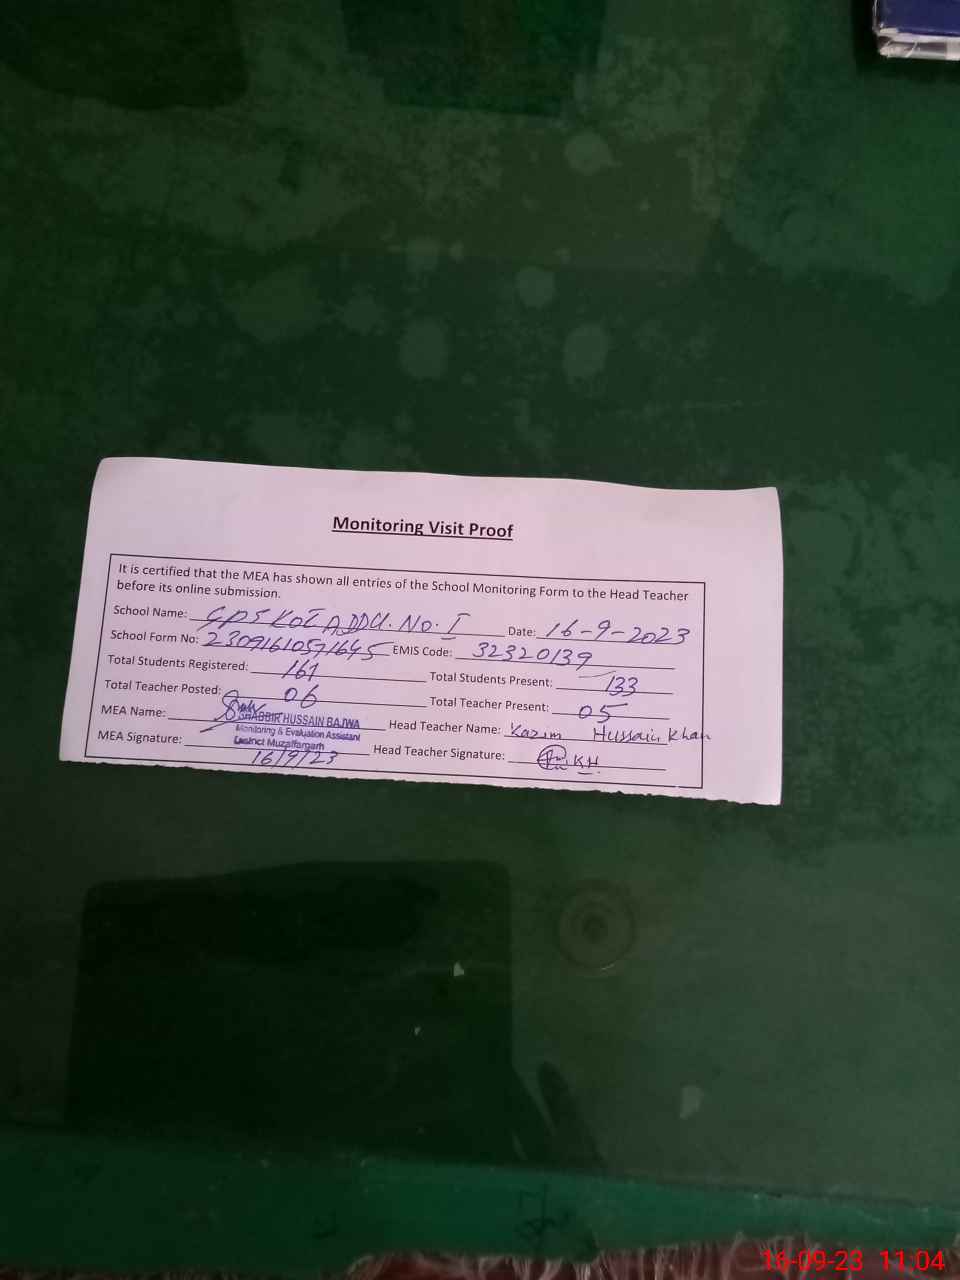 Monitoring Visit Proof
It is certified that the MEA has shown all entries of the School Monitoring Form to the Head Teacher
before its online submission.
School Name: GPS KOT ADDU. No. I Date: 16-9-2023
School Form No: 23091610571645 EMIS Code: 32320139
Total Students Registered: 161 Total Students Present: 133
Total Teacher Posted: 06 Total Teacher Present: 05
MEA Name: SHABBIR HUSSAIN BAJWA Head Teacher Name: Kazim Hussain Khan
Monitoring & Evaluation Assistant
District Muzaffargarh
MEA Signature: 16/9/23 Head Teacher Signature: KH.
16-09-23 11:04